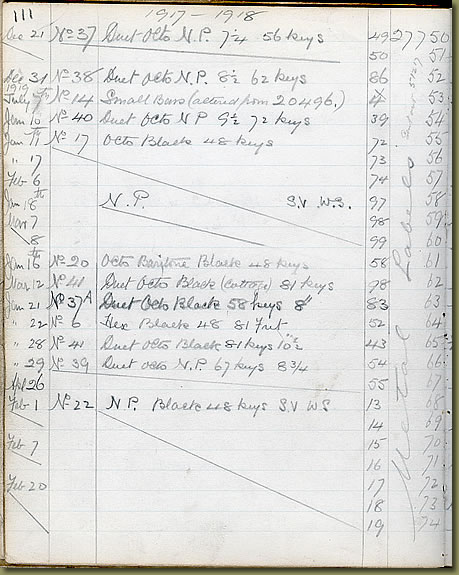 111 1917-1918
Dec 21 No 37 Duet Octo N.P. 7¼ 56 keys 49 27750
50 51
Dec 31 No 38 Duet Octo N.P. 8½ 62 keys 86 52
1919
July No 14 Small Bars (altered from 20496.) 4 53
Jan 10 No 40 Duet Octo N P 9½ 72 keys 39 54
Jan 11 No 17 Octo Black 48 keys 72 55
" 17 73 56
Feb 6 74 57
Jan 18 N.P. S.V. W.S. 97 58
Mar 7 98 59
" 8 99 60
Jan 16 No 20 Octo Baritone Black 48 keys 58 61
Mar 12 No 41 Duet Octo Black (Cottow) 81 keys 78 62
Jan 21 No 37A Duet Octo Black 58 keys 8" 83 63
" 22 No 6 Hex Black 48 81 Fret 52 64
" 28 No 41 Duet Octo Black 81 keys 10½ 43 65
" 29 No 39 Duet Octo N.P. 67 keys 8¾ 54 66
26 55 67
Feb 1 No 22 N.P. Black 48 keys S.V W S 13 68
14 69
Feb 7 15 70
16 71
Feb 20 17 72
18 73
19 74
Metal Labels